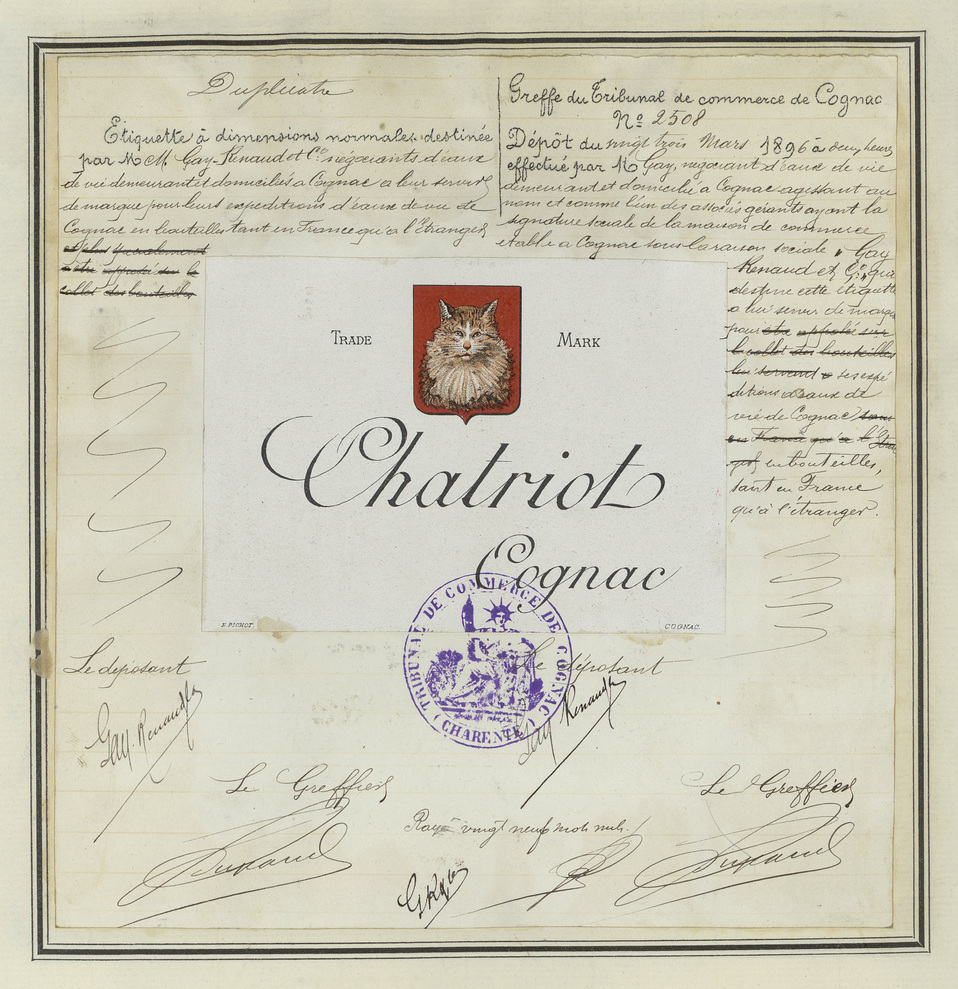 Duplicata
Etiquette à dimensions normales destinée
par M.M. Gay-Renaud et Cie négociants d'eaux
de vie demeurant et domiciliés à Cognac à leur servir
de marque pour leurs expéditions d'eaux de vie de
Cognac en bouteilles tant en France qu'à l'étranger
et plus spécialement
à être apposée sur le
collet des bouteilles
Greffe du Tribunal de commerce de Cognac
No 2508
Dépôt du vingt trois Mars 1896 à deux heures
effectué par M. Gay, négociant d'eaux de vie
demeurant et domicilié à Cognac agissant au
nom et comme l'un des associés gérants ayant la
signature sociale de la maison de commerce
établie à Cognac sous la raison sociale "Gay
Renaud et Cie" qui
destine cette étiquette
à lui servir de marque
pour être apposée sur
le collet des bouteilles
lui servant à ses expé
ditions d'eaux de
vie de Cognac tant
en France qu'à l'étran
ger en bouteilles,
tant en France
qu'à l'étranger.
TRADE MARK
Chatriot
Cognac
E. PICHOT. COGNAC.
TRIBUNAL DE COMMERCE DE COGNAC
(CHARENTE)
Le déposant
Gay-Renaud & Cie
Le déposant
Gay Renaud & Cie
Le Greffier
Le Greffier
Rayé vingt neuf mots nuls.
GR & Cie